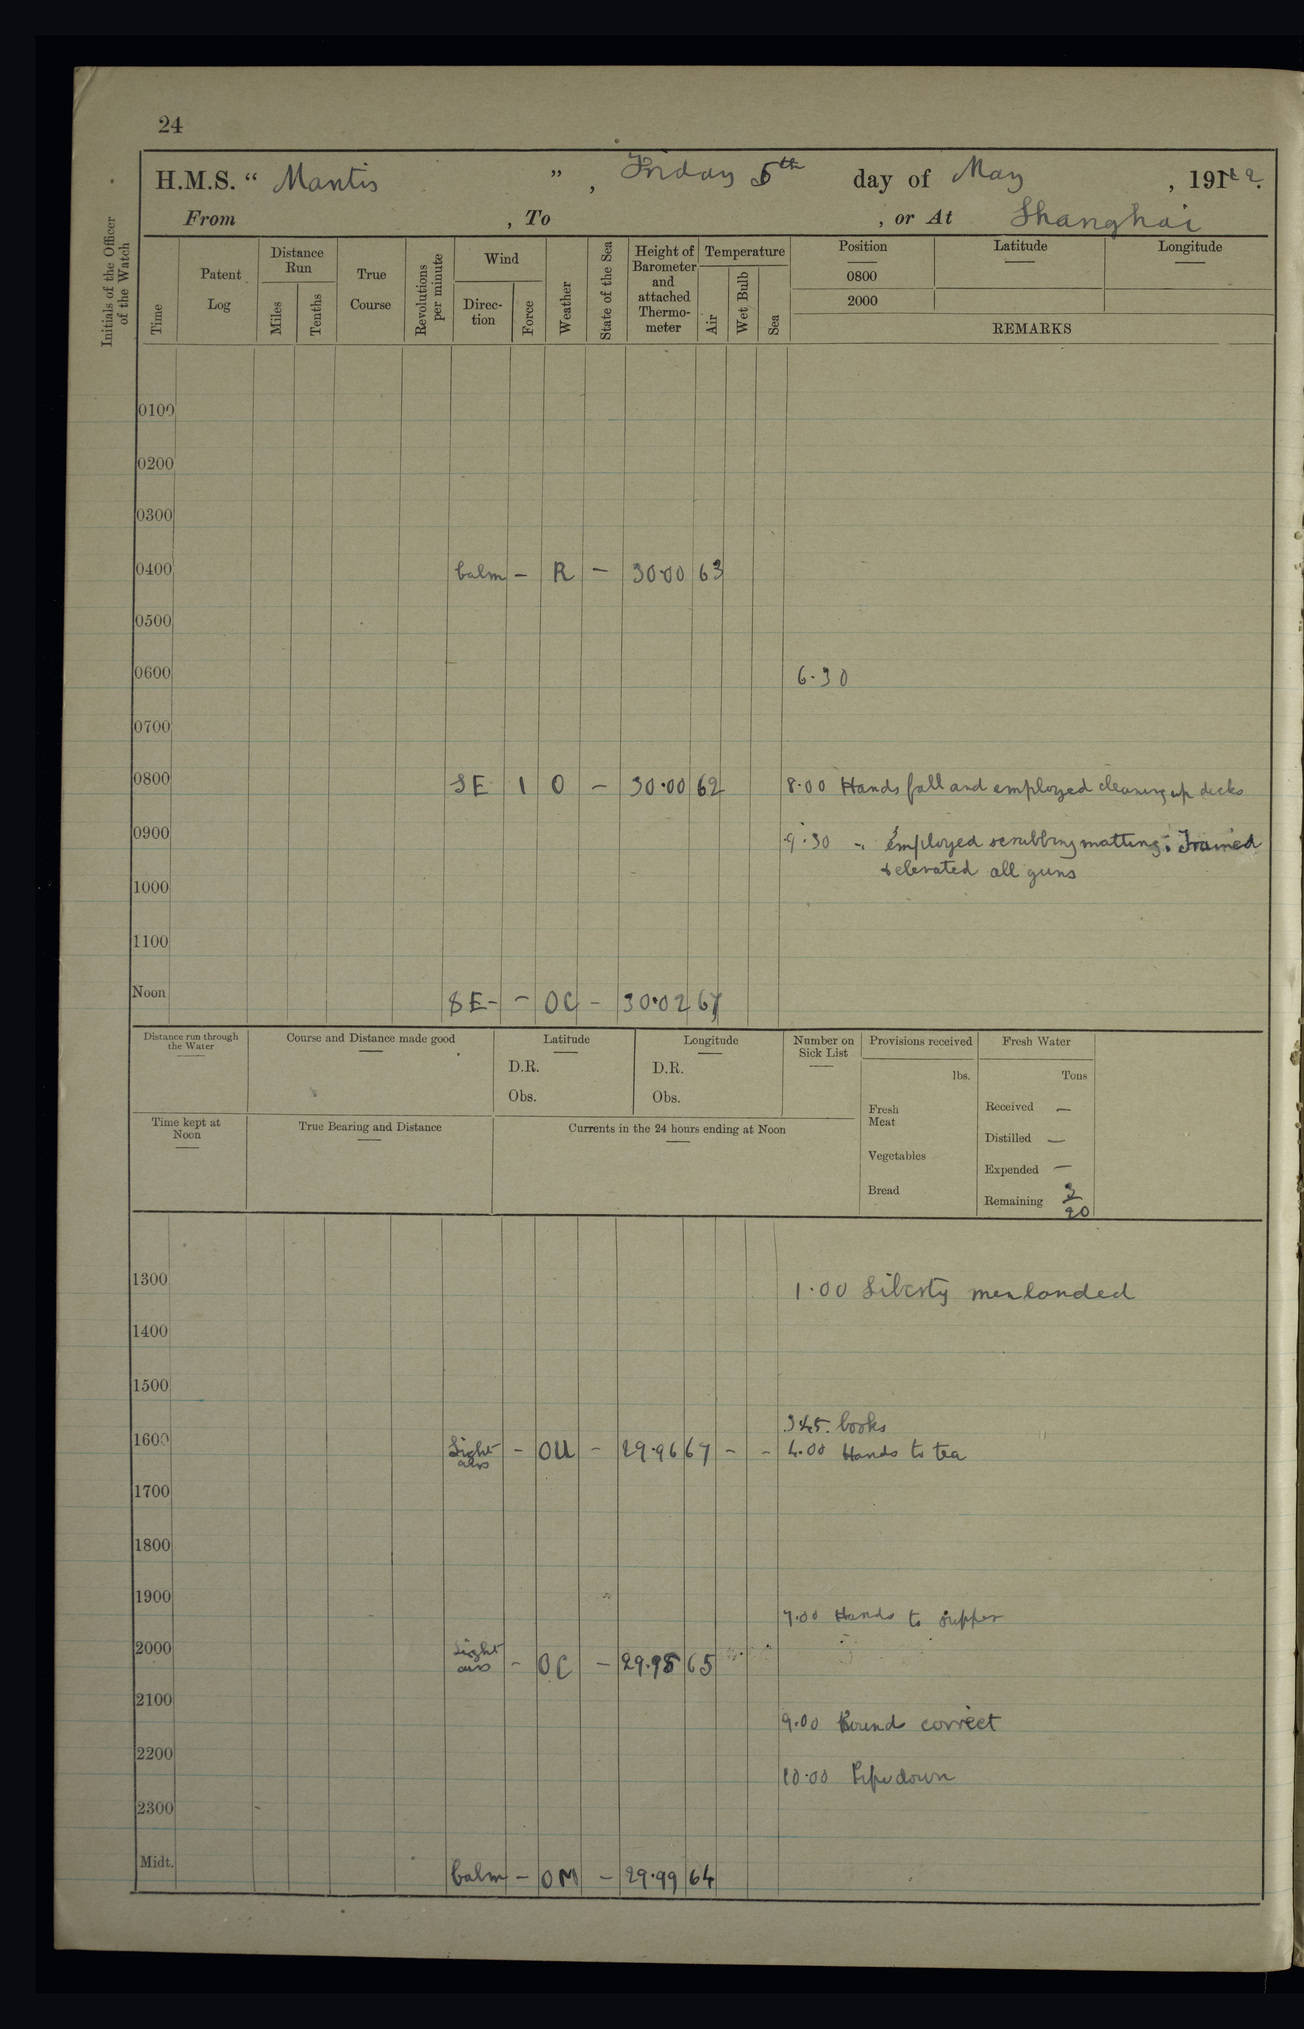 24
H.M.S. “ Mantis ” , Friday 5th day of May , 1922.
From , To , or At Shanghai
Initials of the Officer of the Watch
Time
Patent Log
Distance Run
Miles
Tenths
True Course
Revolutions per minute
Wind
Direc-tion
Force
Weather
State of the Sea
Height of Barometer and attached Thermo-meter
Temperature
Air
Wet Bulb
Sea
Position
Latitude
Longitude
0800
2000
REMARKS
0100
0200
0300
0400 Calm – R – 30.00 63
0500
0600 6.30
0700
0800 SE 1 O – 30.00 62 8.00 Hands fall and employed cleaning up decks
0900 9.30 " Employed scrubbing matting. Trained
& elevated all guns
1000
1100
Noon SE – – OC – 30.02 67
Distance run through the Water
Course and Distance made good
Latitude
D.R.
Obs.
Longitude
D.R.
Obs.
Number on Sick List
Provisions received
lbs.
Fresh Meat
Vegetables
Bread
Fresh Water
Tons
Received —
Distilled —
Expended —
Remaining 20
Time kept at Noon
True Bearing and Distance
Currents in the 24 hours ending at Noon
1300 1.00 Liberty men landed
1400
1500
345. books
1600 Light airs – OU – 29.96 67 – – 4.00 Hands to tea
1700
1800
1900 7.00 Hands to supper
2000 Light airs – OC – 29.98 65
2100 9.00 Round correct
2200 10.00 Pipe down
2300
Midt. Calm – OM – 29.99 64